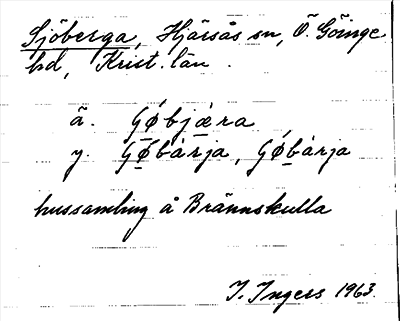 Sjöberga, Hjärsås sn, Ö. Göinge
hd, Krist. län.
ä. Gǿbjæra
y. Gǿbàrja, Gǿbàrja
hussamling å Brännskulla
I. Ingers 1963.